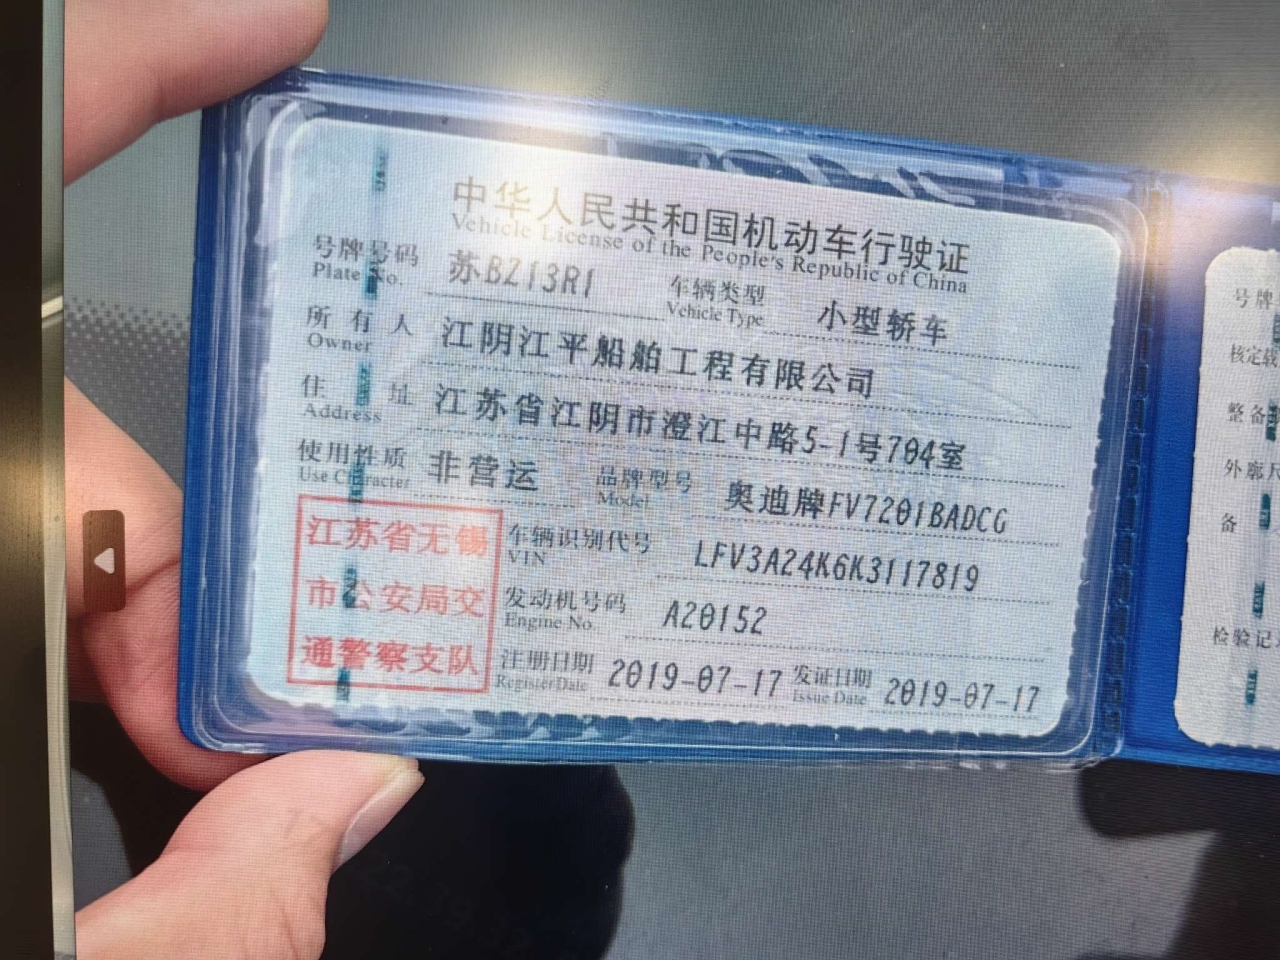 中华人民共和国机动车行驶证
Vehicle License of the People's Republic of China
号牌号码 苏BZ13R1 车辆类型 小型轿车
Plate No. Vehicle Type
所有人 江阴江平船舶工程有限公司
Owner
住址 江苏省江阴市澄江中路5-1号704室
Address
使用性质 非营运 品牌型号 奥迪牌FV7201BADCG
Use Character Model
江苏省无锡
市公安局交
通警察支队
车辆识别代号 LFV3A24K6K3117819
VIN
发动机号码 A20152
Engine No.
注册日期 2019-07-17 发证日期 2019-07-17
Register Date Issue Date
号牌
核定载
整备
外廓尺
备
检验记